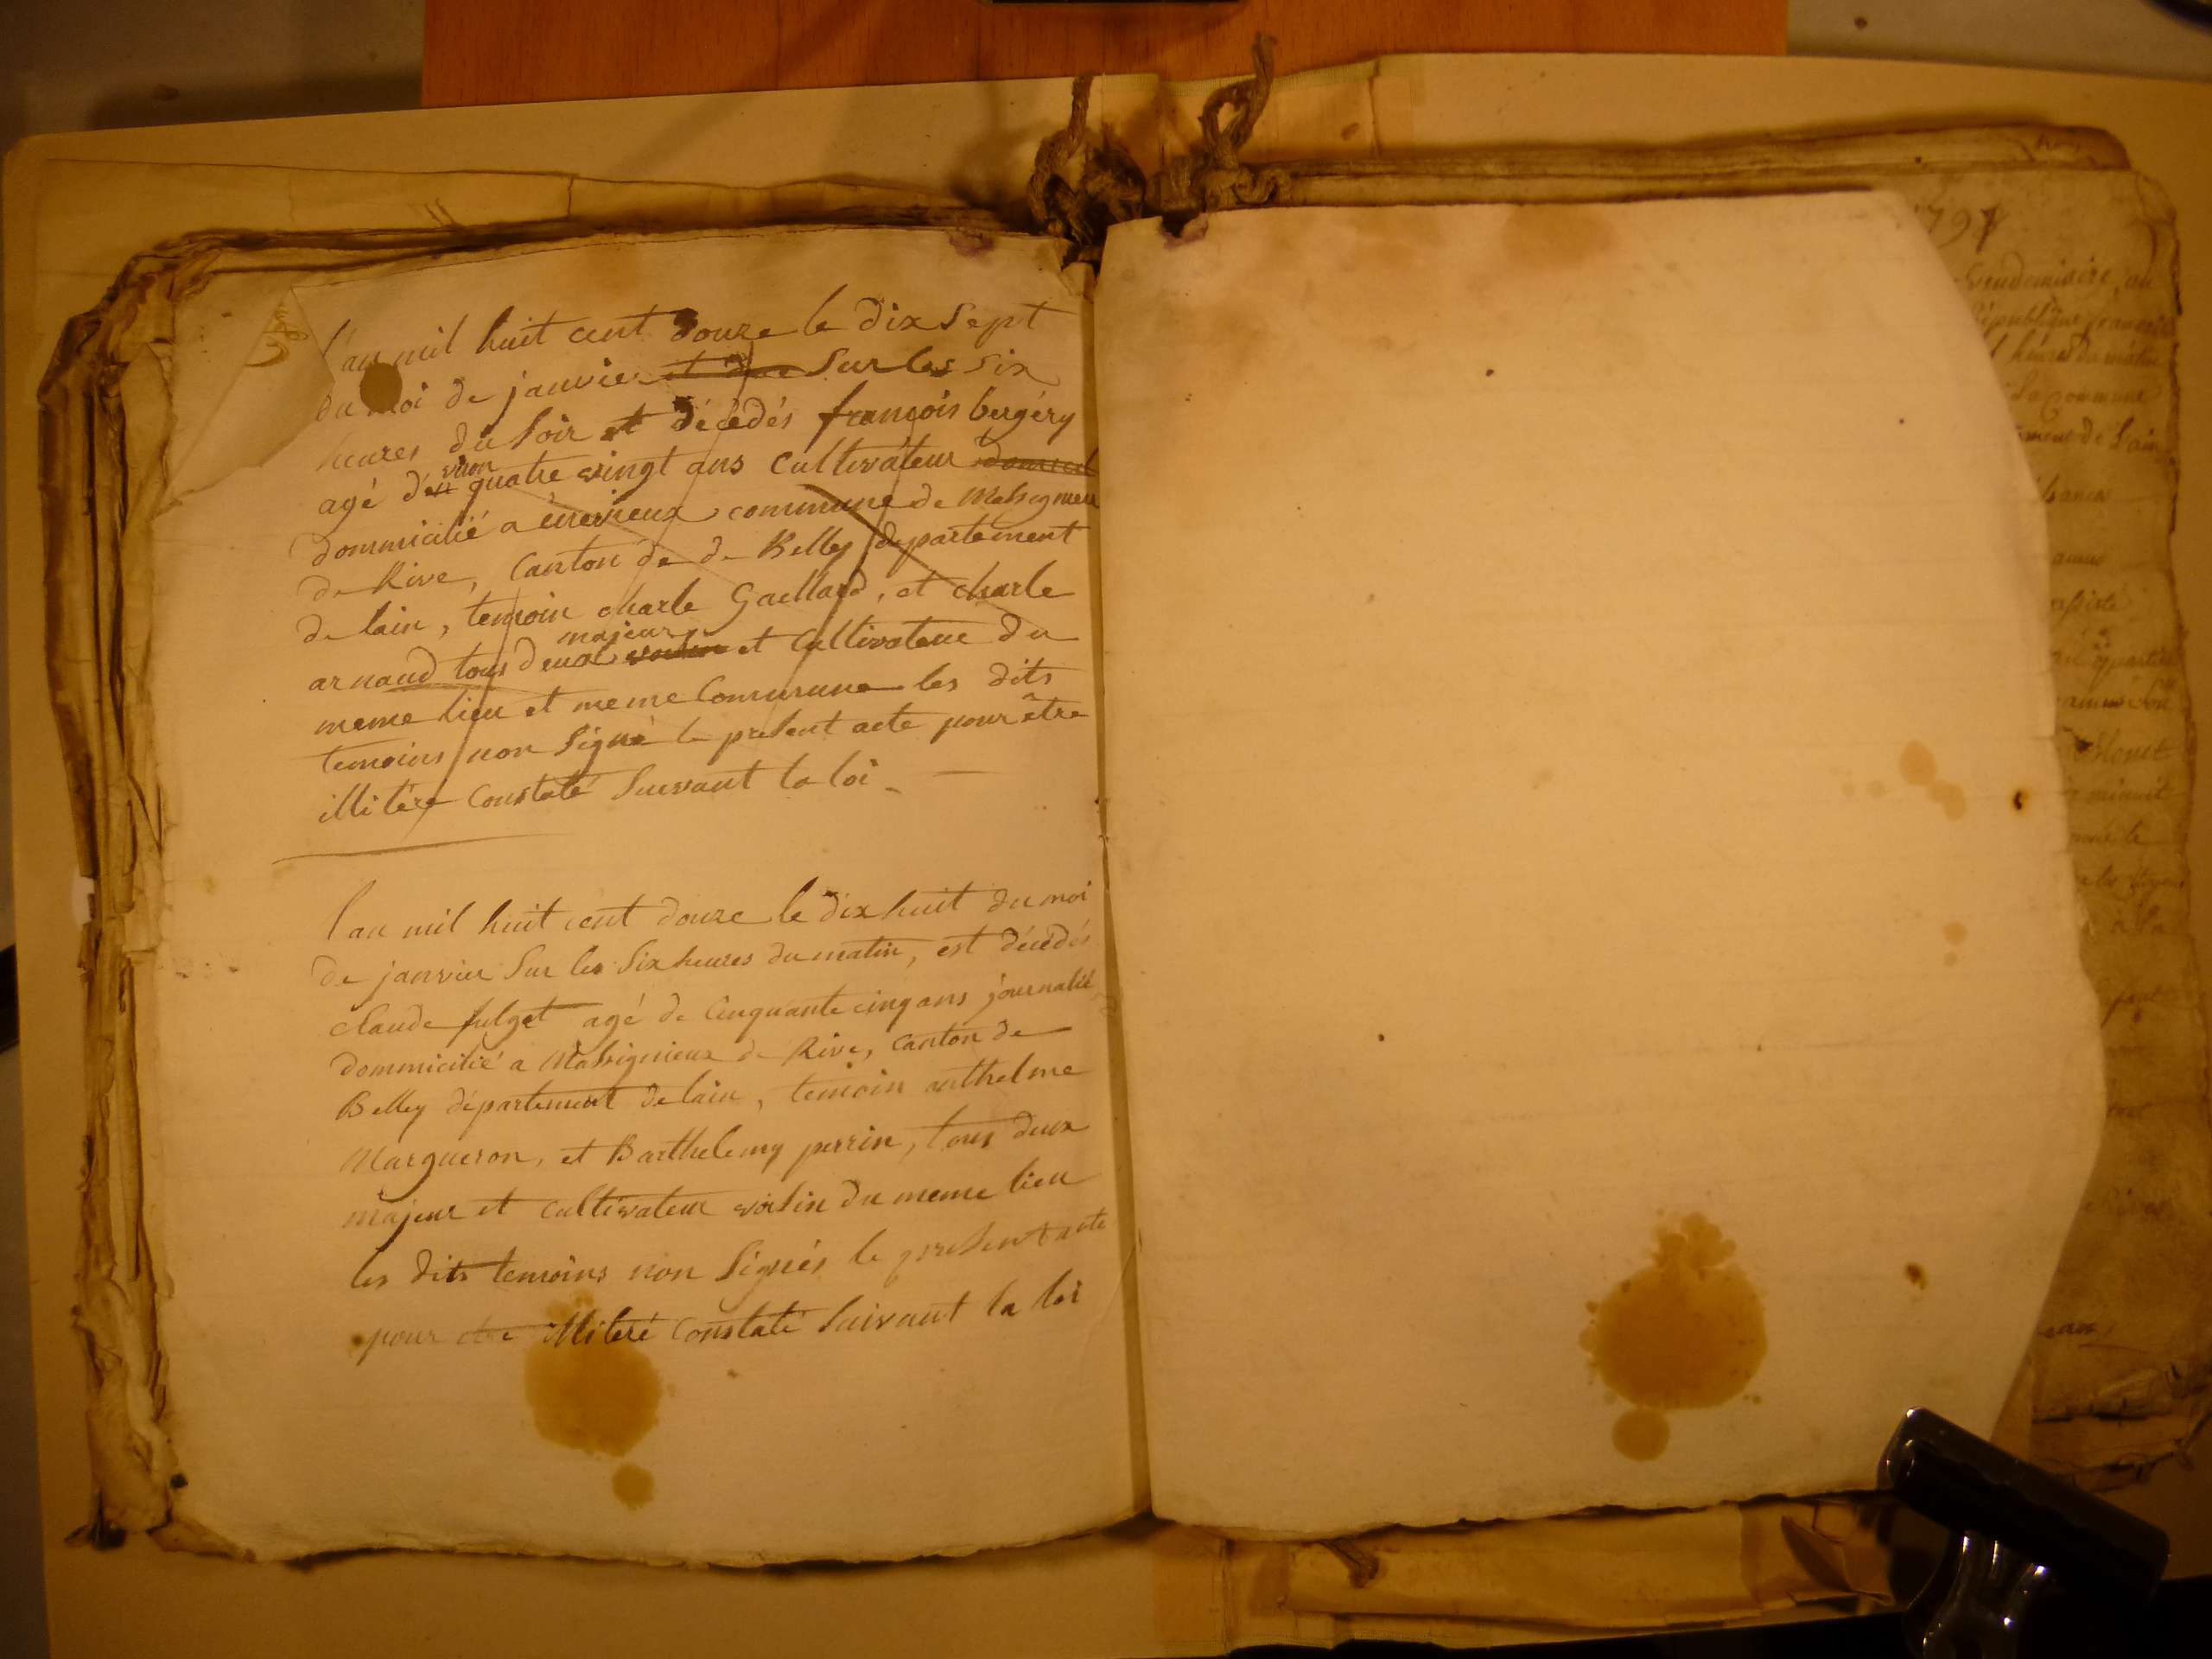 l'an mil huit cent douze le dix sept
du moi de janvier et Sur les six
heures du Soir et décédés françois bergéry
viron
agé d'en quatre vingt ans Cultivateur domicil
dommicilié a commune de Massigneu
de Rive, Canton de de Belley département
de lain, temoin charle Gaellard, et charle
majeur
arnaud tous deux voisin et Cultivateur du
meme lieu et meme Commune les dits
temoins non Signé le présent acte pour être
illitéré Constaté Suivant la loi
l'an mil huit cent douze le dix huit du moi
de janvier Sur les Six heures du matin, est décédés
claude fulget agé de Cinquante cinq ans journalié
dommicilié a Massignieux de Rive, Canton de
Belley département de lain, temoin anthelme
Margueron, et Barthelemy perrin, tous deux
majeur et Cultivateur voisin du meme lieu
les dits temoins non Signés le présent acte
pour être illiteré Constaté Suivant la loi
1797
Vendemiaire, an
République française
heures du matin
La Commune
de Lain